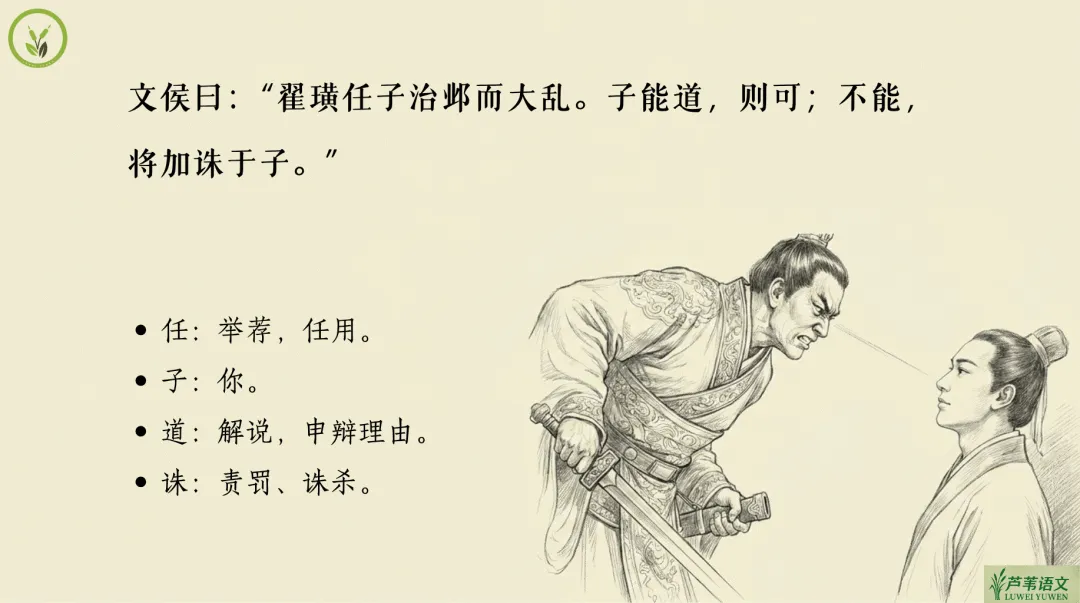 文侯曰：“翟璜任子治邺而大乱。子能道，则可；不能，
将加诛于子。”
• 任：举荐，任用。
• 子：你。
• 道：解说，申辩理由。
• 诛：责罚、诛杀。
芦苇语文
LUWEI YUWEN